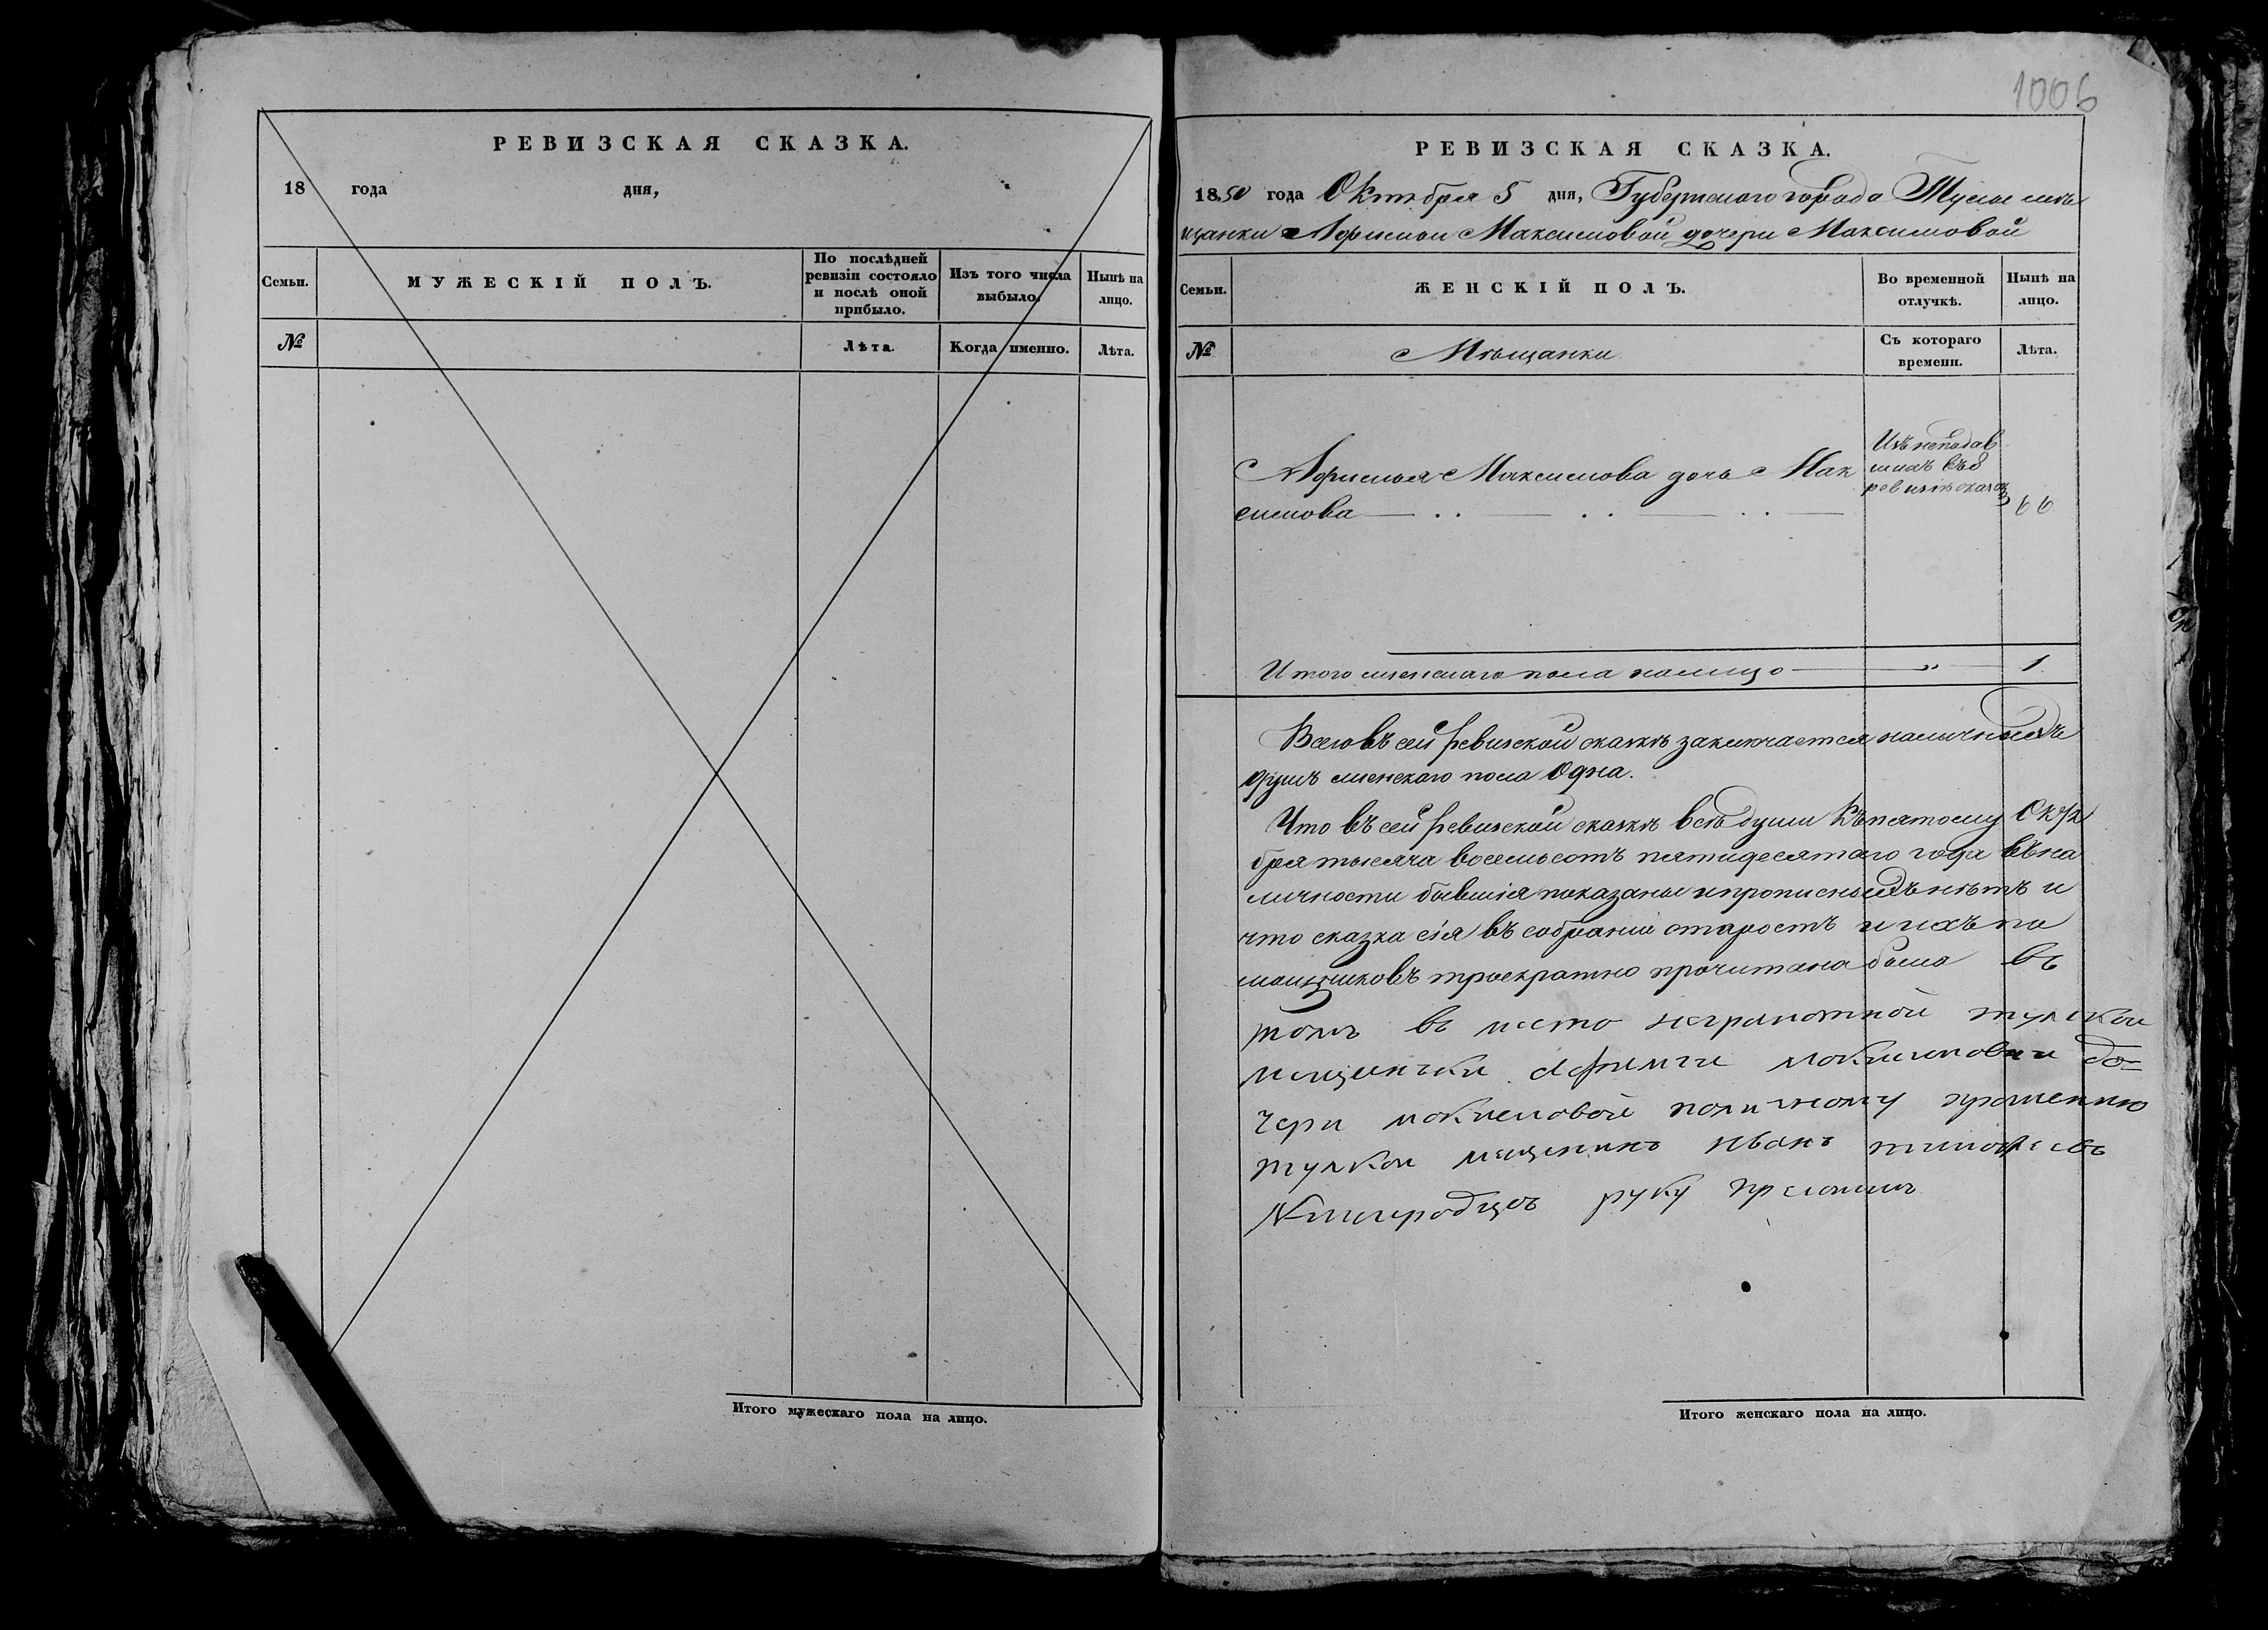 РЕВИЗСКАЯ СКАЗКА.
18 года дня,
Семьи.
МУЖЕСКІЙ ПОЛЪ.
По послѣдней
ревизіи состояло
и послѣ оной
прибыло.
Изъ того числа
выбыло.
Нынѣ на
лицо.
№
Лѣта.
Когда именно.
Лѣта.
Итого мужескаго пола на лицо.
1006
РЕВИЗСКАЯ СКАЗКА.
1850 года Октября 5 дня, Губернскаго города Тулы мѣ
щанки Афимьи Максимовой дочери Максимовой
Семьи.
ЖЕНСКІЙ ПОЛЪ.
Во временной
отлучкѣ.
Нынѣ на
лицо.
№
Мѣщанки
Съ котораго
времени.
Лѣта.
Афимья Максимова дочь Мак
симова
Изъ неподав
шихъ въ 8
66
Итого женскаго пола налицо — „ — 1
Всего въ сей ревизской сказкѣ заключается наличныхъ
душъ женскаго пола Одна.
Что въ сей ревизской сказкѣ всѣ души къ пятому Октя
бря тысяча восемьсотъ пятидесятаго года въ на
личности бывшія показаны и прописныхъ нѣтъ и
что сказка сія въ собраніи старостъ и ихъ по
мощниковъ троекратно прочитана была въ
томъ в место неграмотной тулскои
мещенъки Афимги максимовни до=
чери максимовой поличному прошению
тулкои мещенинъ Иванъ тимофеевъ
руку преложилъ
Итого женскаго пола на лицо.